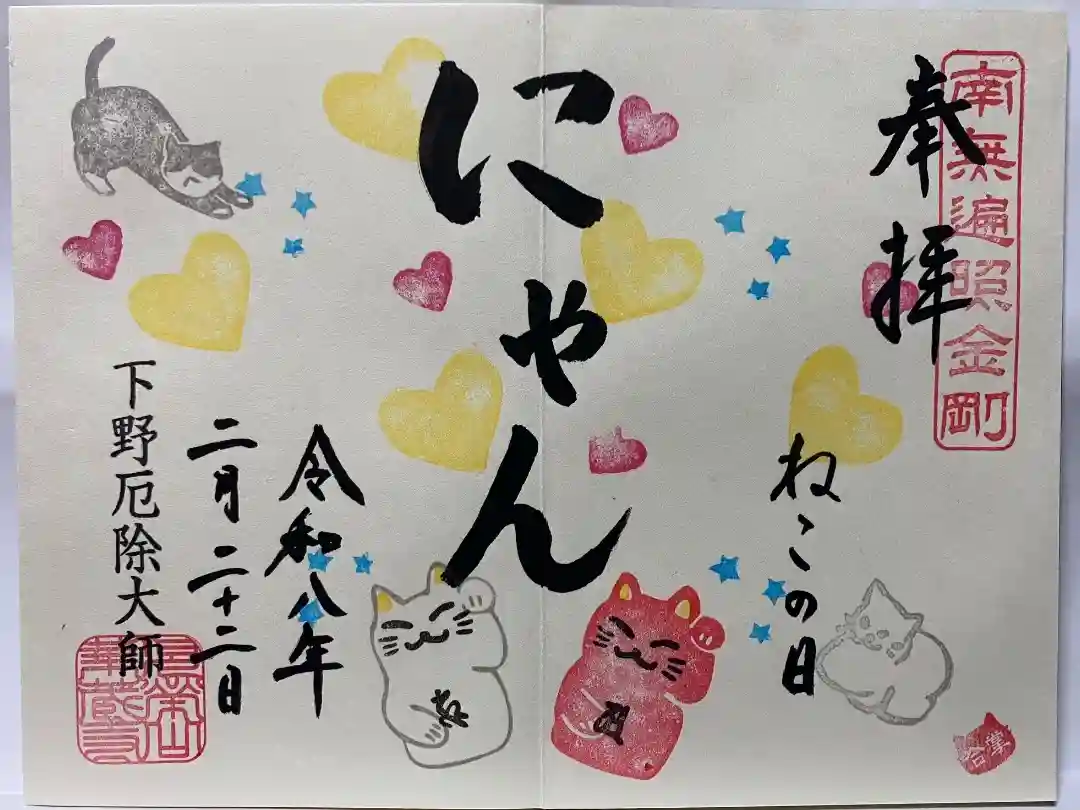 南無遍照金剛
奉拝
ねこの日
にゃん
令和八年
二月二十二日
下野厄除大師
合掌